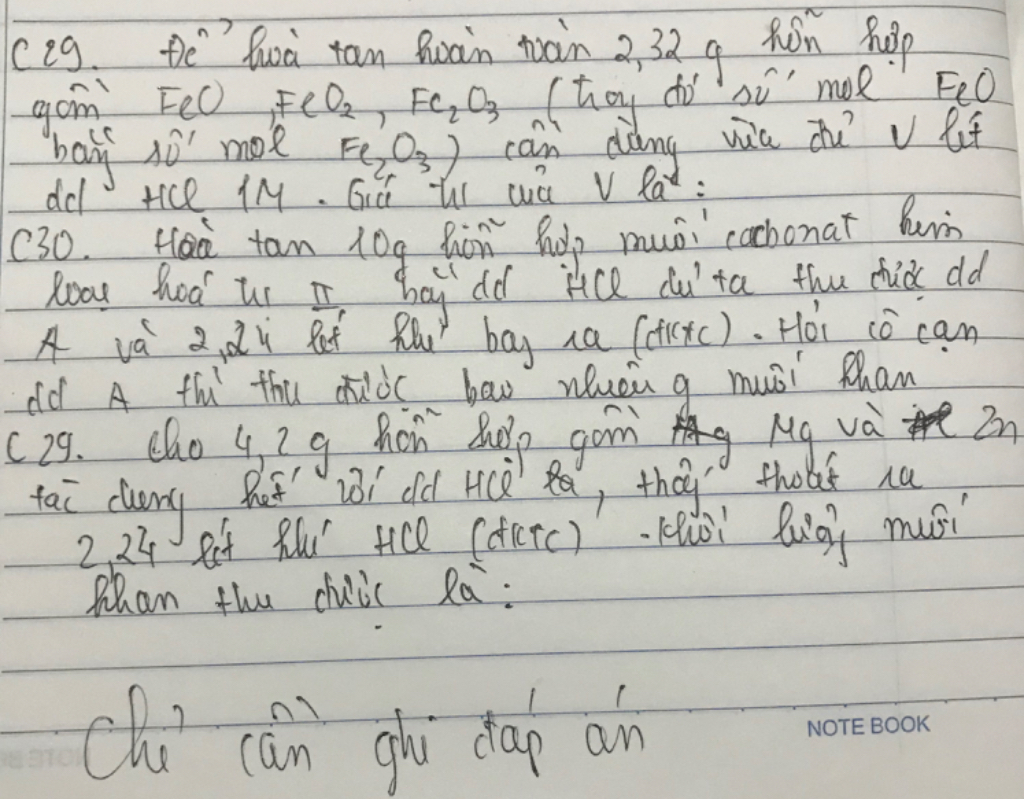 C29. Để hoà tan hoàn toàn 2,32 g hỗn hợp
gồm FeO, FeO2, Fe2O3 (trog đó số mol FeO
bằg số mol Fe2O3) cần dùng vừa đủ V lít
dd HCl 1M. Giá trị của V là:
C30. Hoà tan 10g hỗn hợp muối cacbonat kim
loại hoá trị II bằg dd HCl dư ta thu được dd
A và 2,24 lít khí bay ra (đktc). Hỏi cô cạn
dd A thì thu được bao nhiêu g muối khan
C29. Cho 4,2 g hỗn hợp gồm Mg và Zn
tác dụng hết với dd HCl, thấy thoát ra
2,24 lít khí HCl (đktc). Khối lượg muối
khan thu được là:
Chỉ cần ghi đáp án
NOTE BOOK